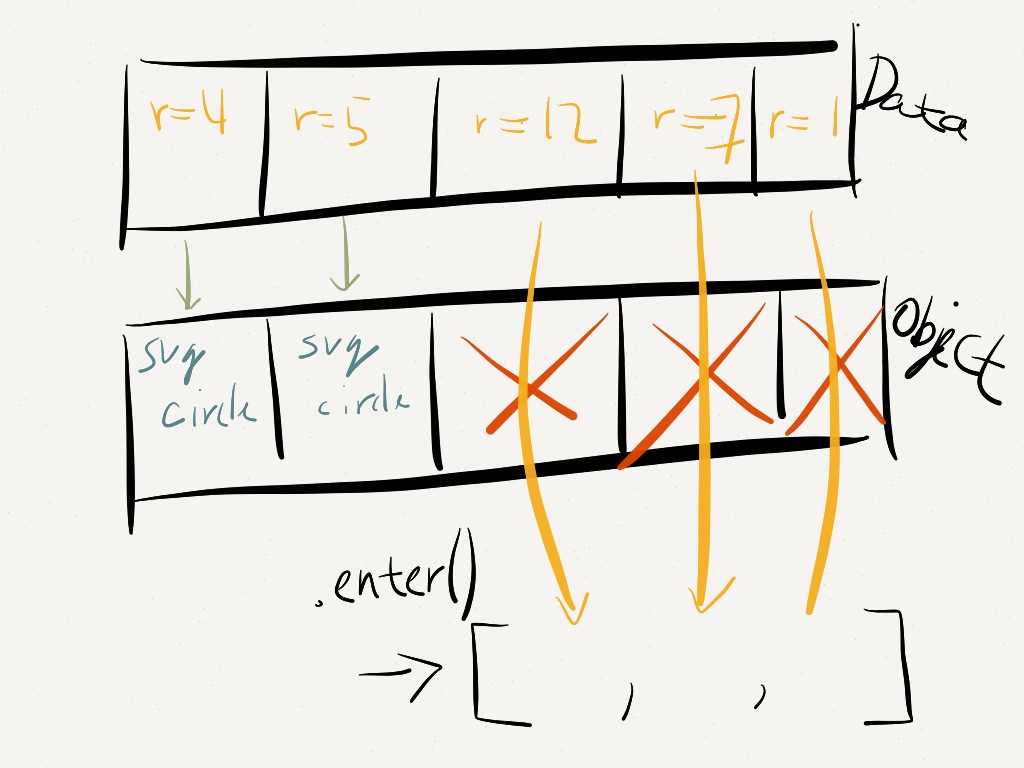 r=4 r=5 r=12 r=7 r=1 Data
svg circle svg circle Object
.enter()
→ [ , , ]